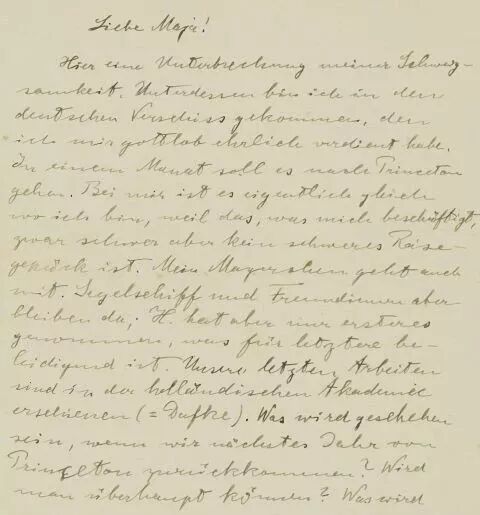 Liebe Maja!
Hier eine Unterbrechung meiner Schweig-
samkeit. Unterdessen bin ich in den
deutschen Verschiss gekommen, den
ich mir gottlob ehrlich verdient habe.
In einem Monat soll es nach Princeton
gehen. Bei mir ist es eigentlich gleich
wo ich bin, weil das, was mich beschäftigt,
zwar schwer aber kein schweres Reise-
gepäck ist. Mein Mayerchen geht auch
mit. Segelschiff und Freundinnen aber
bleiben da; H. hat aber nur ersteres
genommen, was für letztere be-
leidigend ist. Unsere letzten Arbeiten
sind in der holländischen Akademie
erschienen (= Dafke). Was wird geschehen
sein, wenn wir nächstes Jahr von
Princeton zurückkommen? Wird
man überhaupt können? Was wird